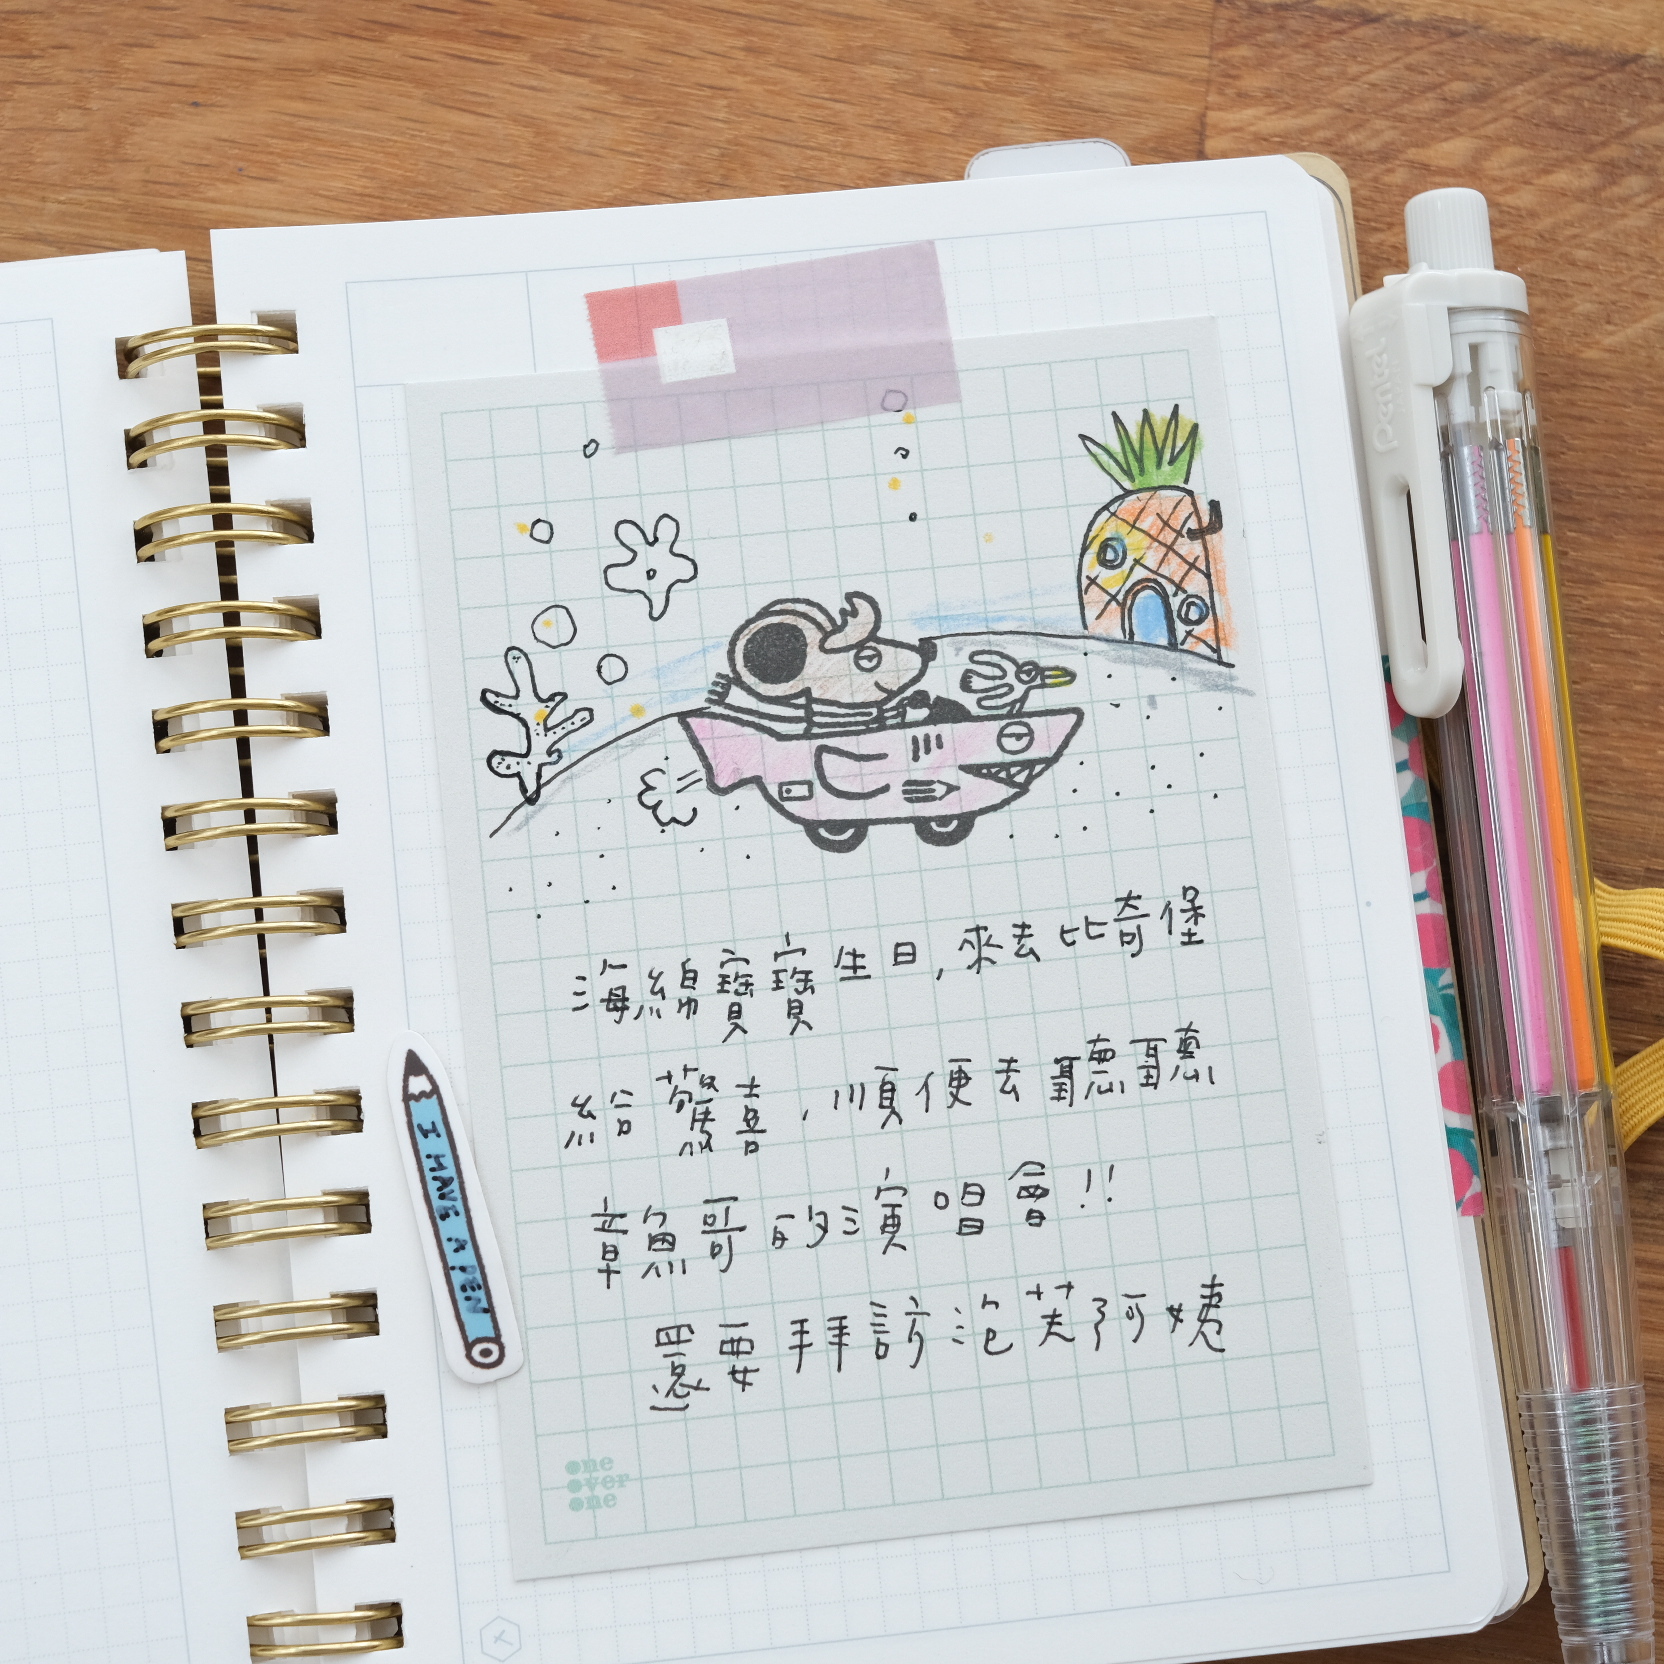 海綿寶寶生日,來去比奇堡
給驚喜,順便去聽聽
章魚哥的演唱會!!
還要拜訪泡芙阿姨
I HAVE A PEN
one
over
one
Pentel